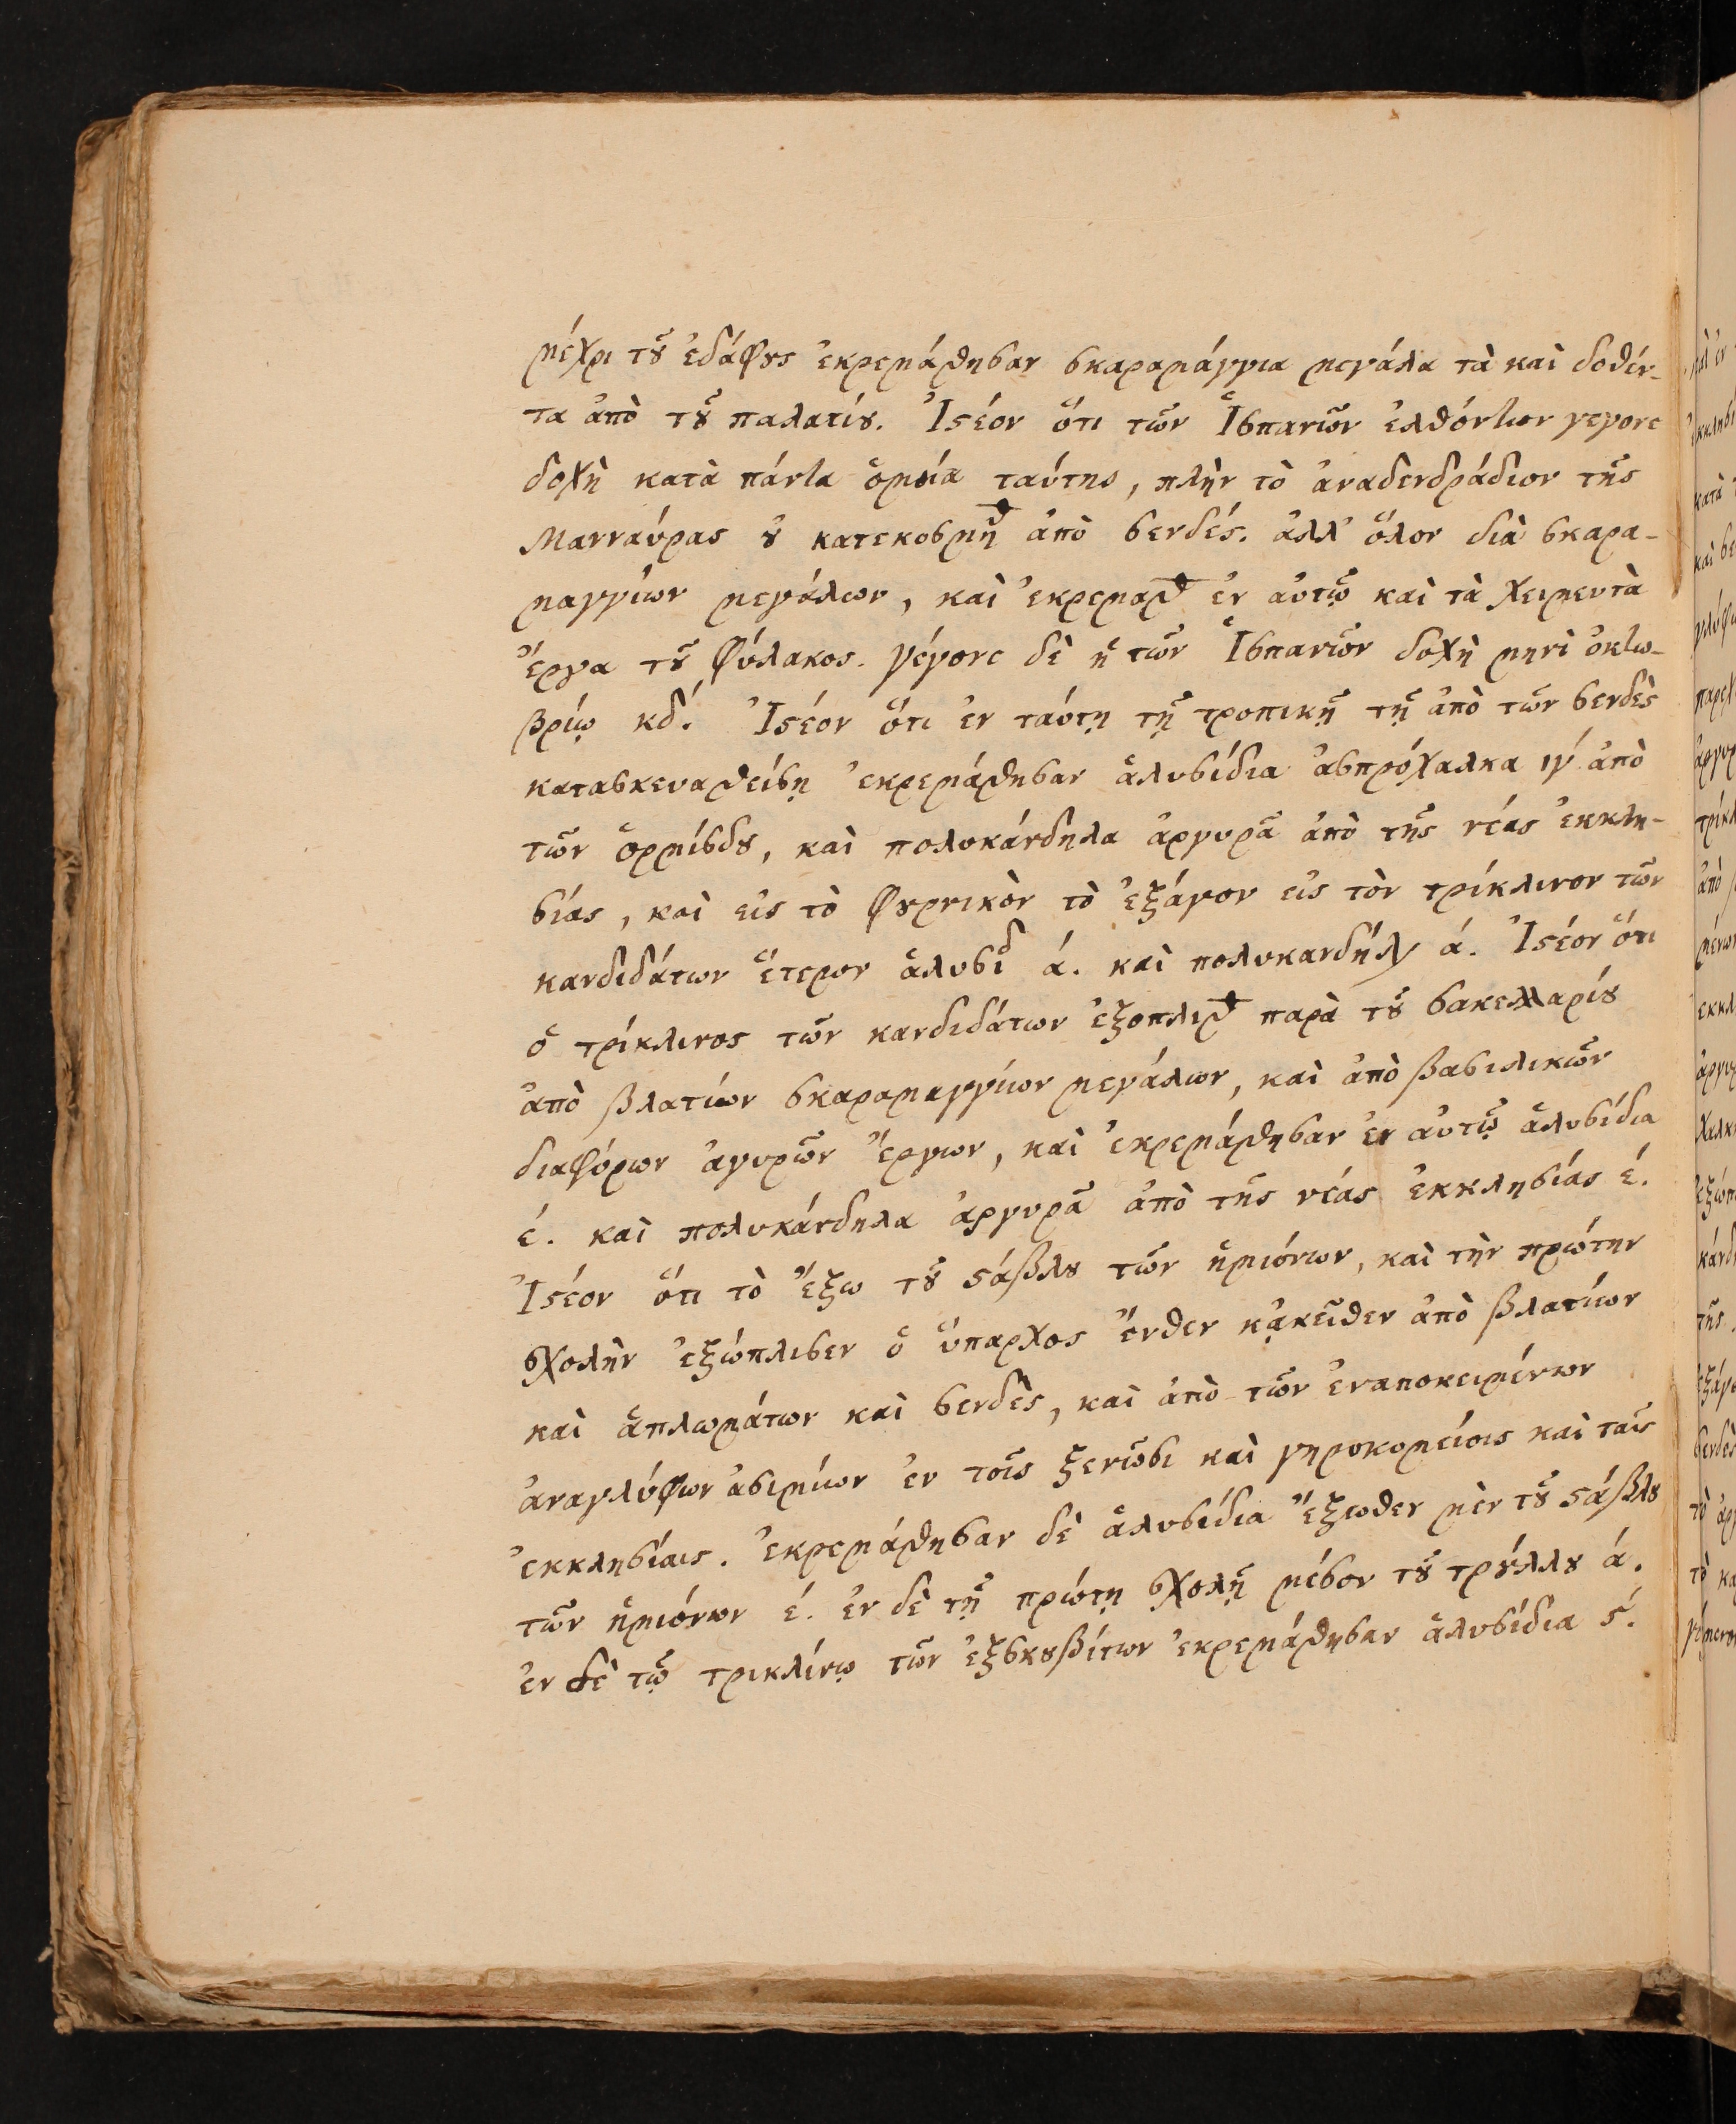 μέχρι τȣ͂ ἐδάφȣς ἐκρεμάσθησαν σκαραμάγγια μεγάλα τὰ καὶ δοθέν-
τα ἀπὸ τȣ͂ παλατίȣ. Ἰϛέον ὅτι τῶν Ἱσπανῶν ἐλθόντων γεγονε
δοχὴ κατὰ πάντα ὁμοία ταύτης, πλὴν τὸ ἀναδενδράδιον τῆς
Μανναύρας ȣ̓ κατεκοσμηθ ἀπὸ σενδές. ἀλλ' ὅλον διὰ σκαρα-
μαγγίων μεγάλων, καὶ ἐκρεμασθ ἐν αὐτῷ καὶ τὰ χειμευτὰ
ἔργα τȣ͂ φύλακος. γέγονε δὲ ἡ τῶν Ἱσπανῶν δοχὴ μηνὶ ὀκτω-
βρίῳ κδ΄. Ἰϛέον ὅτι ἐν ταύτῃ τῇ τροπικῇ τῇ ἀπὸ τῶν σενδὲς
κατασκευασθείσῃ ἐκρεμάσθησαν ἁλυσίδια ἀσπρόχαλκα ιγ΄ ἀπὸ
τῶν ὁρμίσδȣ, καὶ πολυκάνδηλα ἀργυρᾶ ἀπὸ τῆς νέας ἐκκλη-
σίας, καὶ εἰς τὸ φȣρνικὸν τὸ ἐξάγον εἰς τὸν τρίκλινον τῶν
κανδιδάτων ἕτερον ἁλυσιδ ά. καὶ πολυκανδήλ ά. Ἰϛέον ὅτι
ὁ τρίκλινος τῶν κανδιδάτων ἐξοπλισθ παρὰ τȣ͂ σακελλαρίȣ
ἀπὸ βλατίων σκαραμαγγίων μεγάλων, καὶ ἀπὸ βασιλικῶν
διαφόρων ἀγυρῶν ἔργων, καὶ ἐκρεμάσθησαν ἐν αὐτῷ ἁλυσίδια
έ. καὶ πολυκάνδηλα ἀργυρᾶ ἀπὸ τῆς νέας ἐκκλησίας έ.
Ἰϛέον ὅτι τὸ ἔξω τȣ͂ ϛάβλȣ τῶν ἡμιόνων, καὶ τὴν πρώτην
σχολὴν ἐξώπλισεν ὁ ὕπαρχος ἔνθεν κᾀκεῖθεν ἀπὸ βλατίων
καὶ ἁπλωμάτων καὶ σενδὲς, καὶ ἀπὸ τῶν ἐναποκειμένων
ἀναγλύφων ἀσιμίων ἐν τοῖς ξενῶσι καὶ γηροκομείοις καὶ ταῖς
ἐκκλησίαις. ἐκρεμάσθησαν δὲ ἁλυσίδια ἔξωθεν μὲν τȣ͂ ϛάβλȣ
τῶν ἡμιόνων έ. ἐν δὲ τῇ πρώτῃ σχολῇ μέσον τȣ͂ τρȣ́λλȣ ά.
ἐν δὲ τῷ τρικλίνῳ τῶν ἐξσκȣβίτων ἐκρεμάσθησαν ἁλυσίδια ϛ΄.